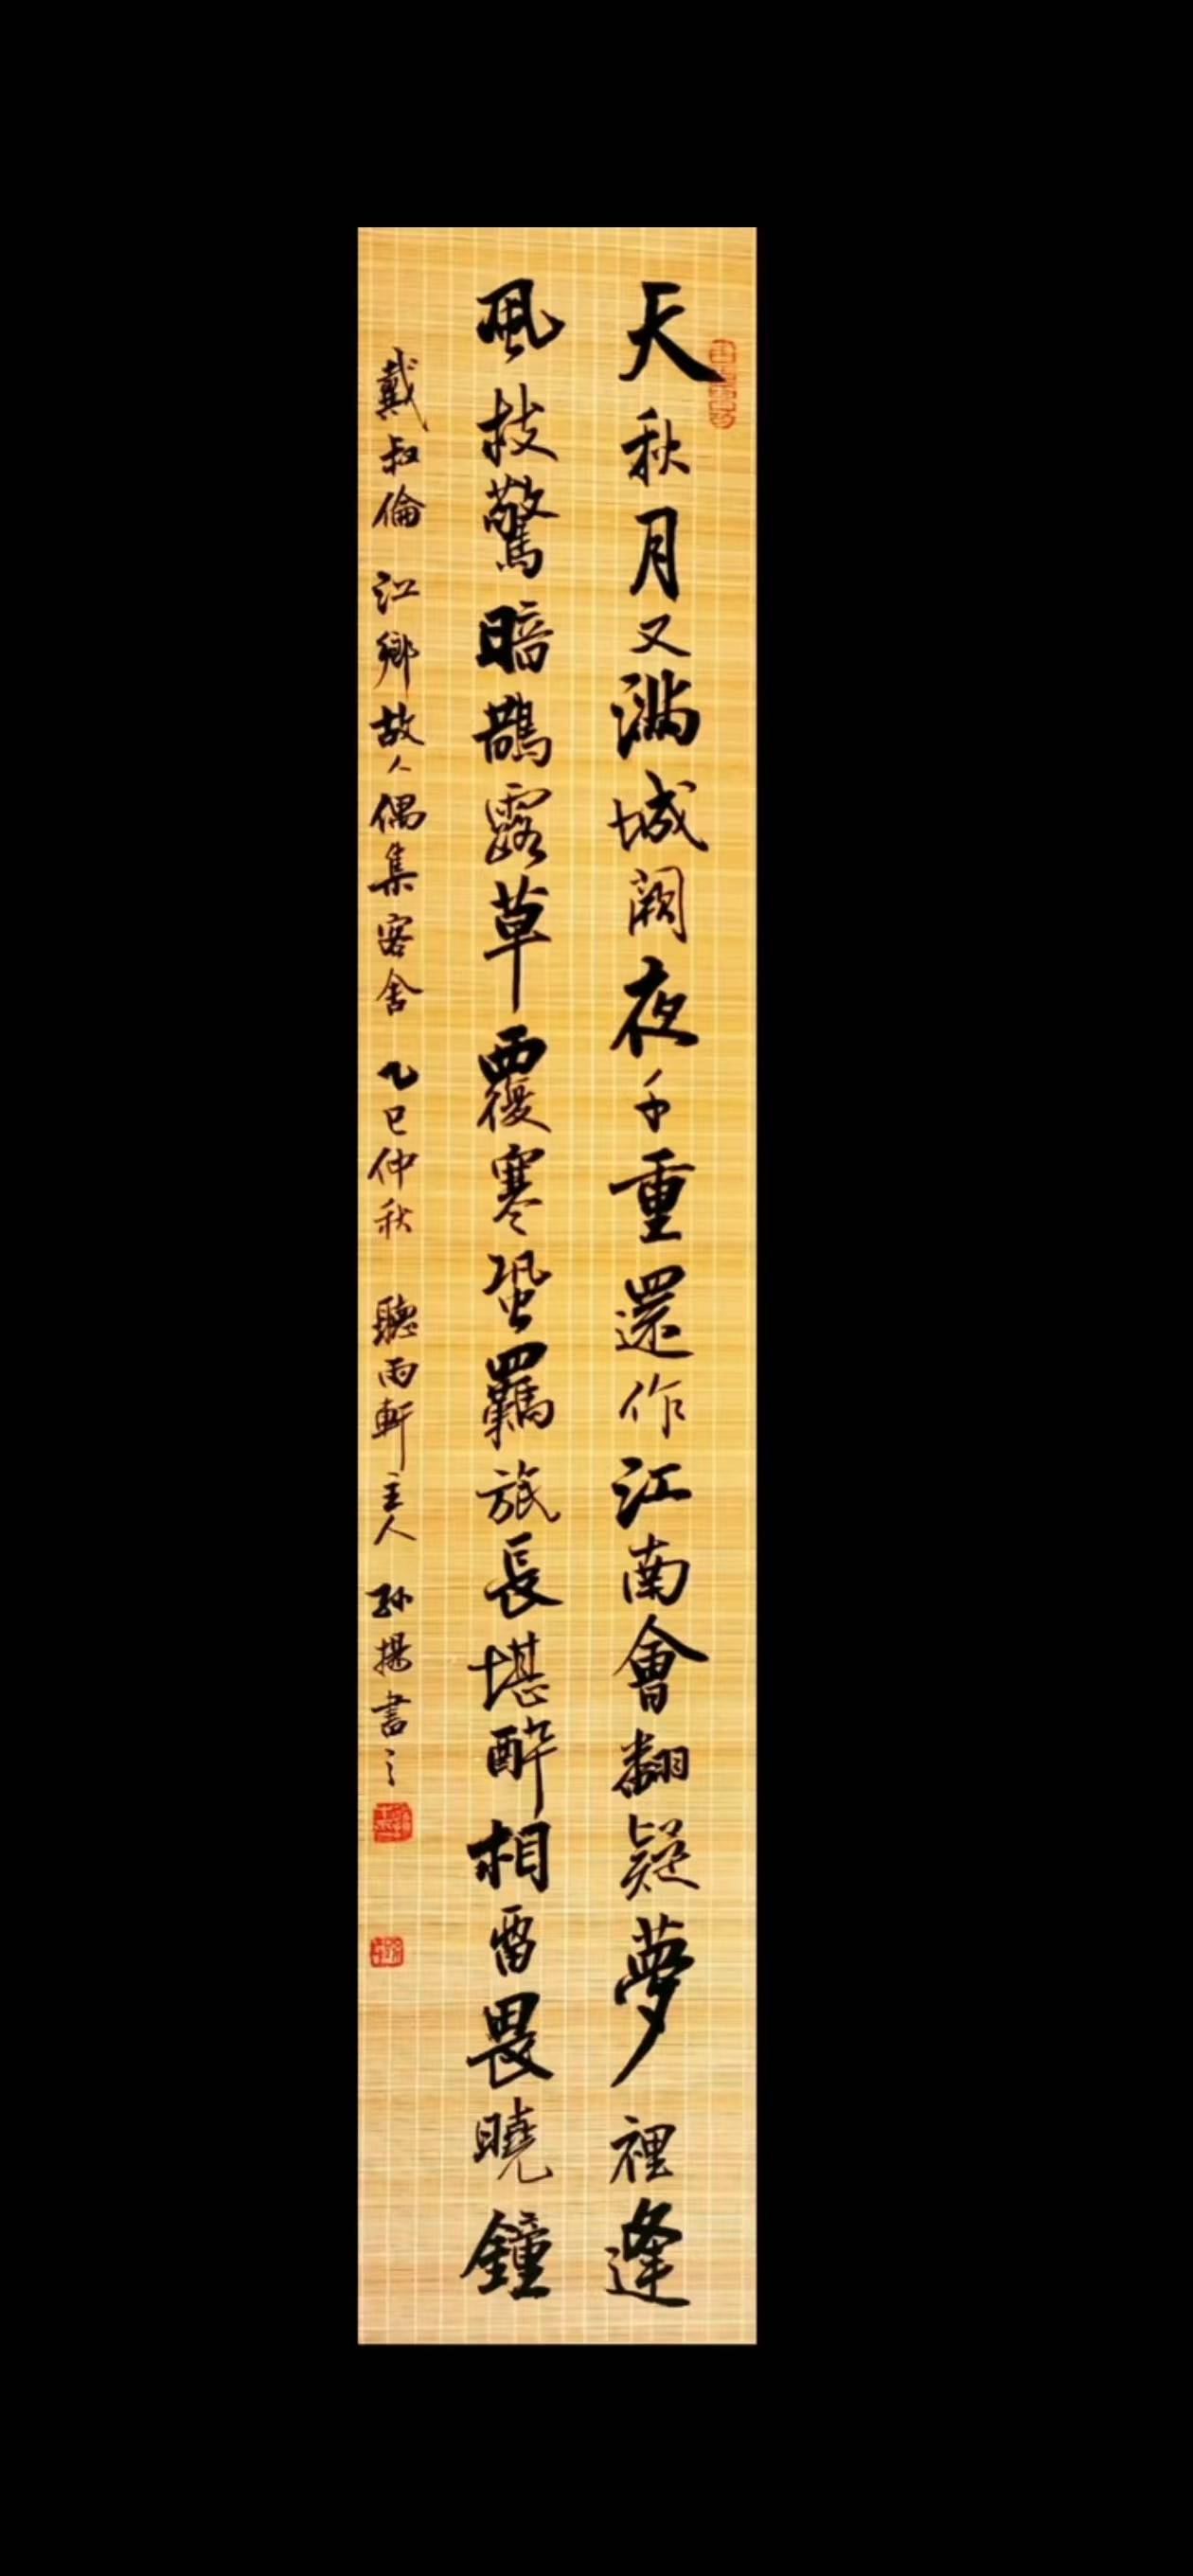 天秋月又滿城闕夜千重還作江南會翻疑夢裡逢
風枝驚暗鵲露草覆寒蛩羈旅長堪醉相畱畏曉鐘
戴叔倫 江鄉故人偶集客舍 乙巳仲秋 聽雨軒主人 孙揚書之